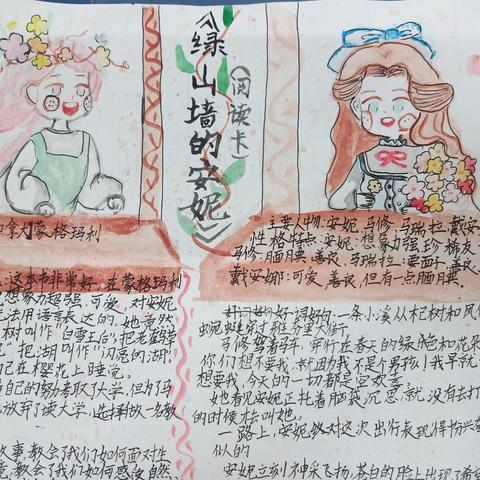 《绿山墙的安妮》
(阅读卡)
拿大蒙格玛利
:这本书非常好,在蒙格玛利
想象力超强、可爱,对安妮
无法用语言表达的。她竟然
树叫作“白雪王后”把老鹤草
把湖叫作“闪亮的湖”
己在樱花上睡觉。
自己的努力考取了大学,但为了马
放弃了读大学,选择
故事教会了我们如何面对生
教会了我们如何感受自然
主要人物:安妮、马修、马瑞拉、戴安
性格特点:安妮:想象力强,珍惜友
马修:腼腆、善良、马瑞拉:要面子、善良
戴安娜:可爱、善良,但有一点腼腆
好词好句:一条小溪从杞树和凤仙
蜿蜒
马修驾着马车穿行在春天的绿色和花朵
你们不想要我,就因为我不是个男孩!我早就
想要我,今天的一切都是空欢喜
她看见安妮正托着脑袋沉思,就没有去打
的时候才去叫她。
一路上,安妮对这次出行表现得
似的
安妮立刻神采飞扬,苍白的脸上出现了希